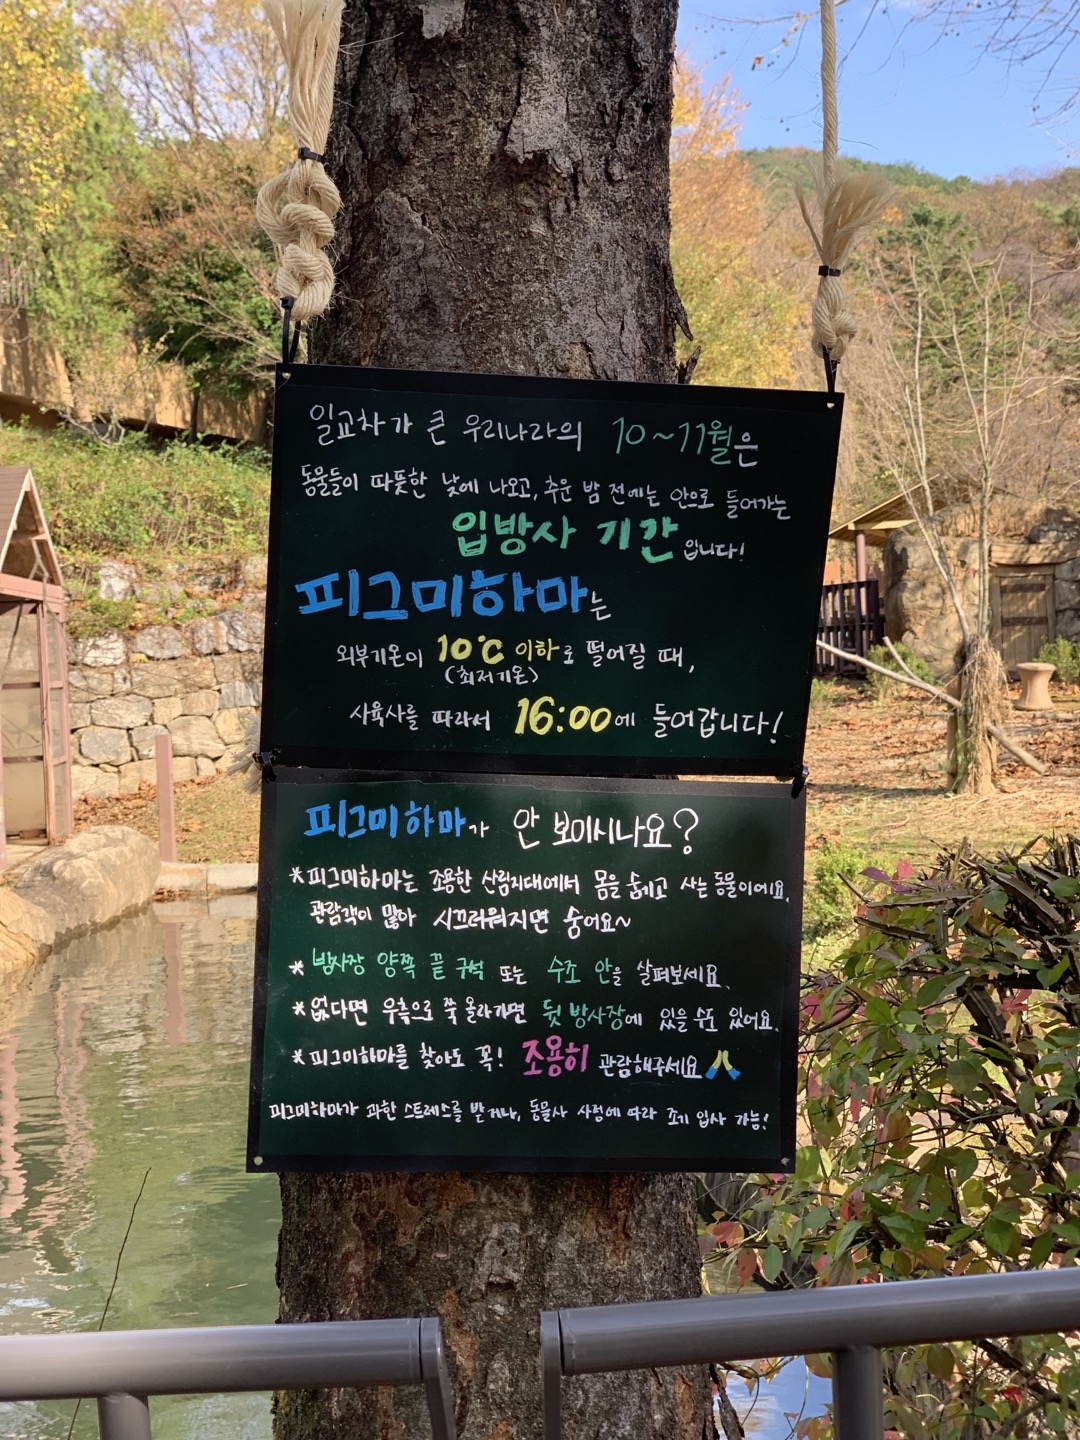 일교차가 큰 우리나라의 10~11월은
동물들이 따뜻한 낮에 나오고, 추운 밤 전에는 안으로 들어가는
입방사 기간 입니다!
피그미하마는
외부기온이 10℃ 이하로 떨어질 때,
(최저기온)
사육사를 따라서 16:00에 들어갑니다!
피그미하마가 안 보이시나요?
*피그미하마는 조용한 산림지대에서 몸을 숨기고 사는 동물이에요.
관람객이 많아 시끄러워지면 숨어요~
* 방사장 양쪽 끝 구석 또는 수조 안을 살펴보세요.
* 없다면 우측으로 쭉 올라가면 뒷 방사장에 있을 수도 있어요.
* 피그미하마를 찾아도 꼭! 조용히 관람해주세요
피그미하마가 과한 스트레스를 받거나, 동물사 사정에 따라 조기 입사 가능!